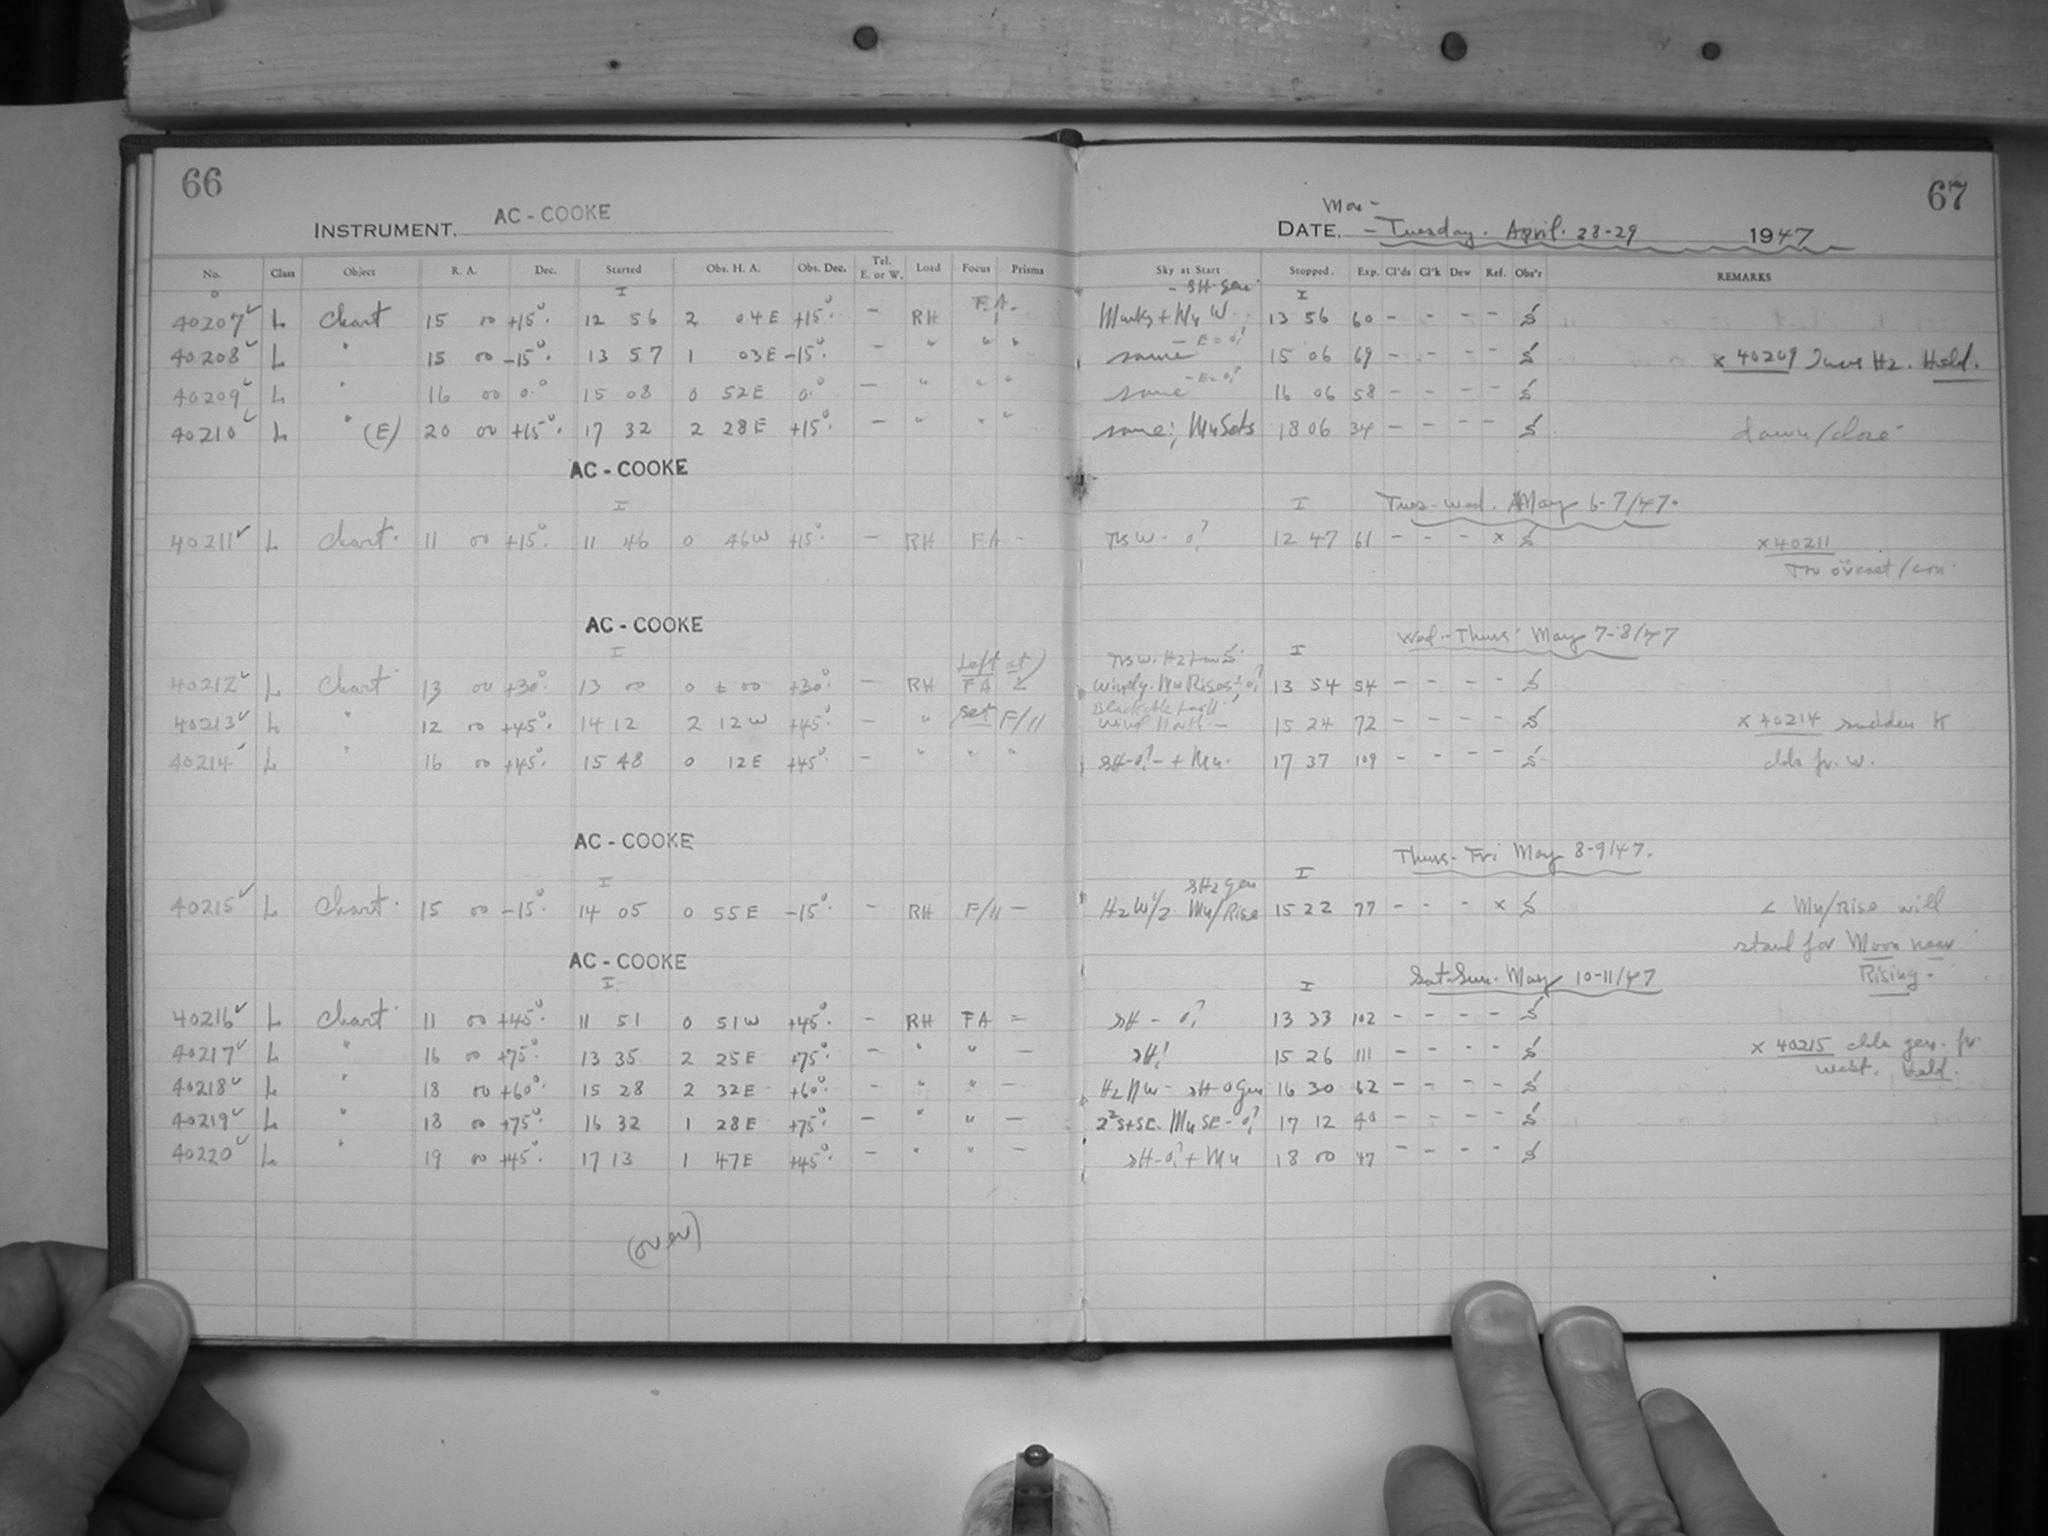 66
INSTRUMENT, AC - COOKE
No. Class Object R. A. Dec. Started Obs. H. A. Obs. Dec. Tel. E. or W. Load Focus Prisms
I
40207 L Chart 15 00 +15° 12 56 2 04 E +15° - RH FA -
40208 L " 15 00 -15° 13 57 1 03 E -15° - " " "
40209 L " 16 00 0° 15 08 0 52 E 0° - " " "
40210 L " (E) 20 00 +15° 17 32 2 28 E +15° - " " "
AC - COOKE
I
40211 L Chart 11 00 +15° 11 46 0 46 W +15° - RH FA -
AC - COOKE
I
Left at
40212 L Chart 13 00 +30° 13 00 0 ± 00 +30° - RH FA
40213 L " 12 00 +45° 14 12 2 12 W +45° - " set F/11
40214 L " 16 00 +45° 15 48 0 12 E +45° - " " "
AC - COOKE
I
40215 L Chart 15 00 -15° 14 05 0 55 E -15° - RH F/11 -
AC - COOKE
I
40216 L Chart 11 00 +45° 11 51 0 51 W +45° - RH FA -
40217 L " 16 00 +75° 13 35 2 25 E +75° - " " -
40218 L " 18 00 +60° 15 28 2 32 E +60° - " " -
40219 L " 18 00 +75° 16 32 1 28 E +75° - " " -
40220 L " 19 00 +45° 17 13 1 47 E +45° - " " -
(over)
67
Mon-
DATE, - Tuesday. April. 28-29 1947
Sky at Start Stopped. Exp. Cl'ds Cl'k Dew Ref. Obs'r REMARKS
I
13 56 60 - - - -
same 15 06 69 - - - - x 40209 Hz. Held.
same 16 06 58 - - - -
same; Mu Sets 18 06 34 - - - - dawn/close
I Tues-Wed. May 6-7/47.
12 47 61 - - - x x 40211
Wed.-Thurs. May 7-8/47
I
Mu Rises 13 54 54 - - - -
wind North - 15 24 72 - - - - x 40214 sudden K
+ Mu. 17 37 109 - - - - clds fr. W.
Thurs-Fri May 8-9/47.
I
sHz gen
Hz W/2 Mu/Rise 15 22 77 - - - x < Mu/Rise will
stand for Moon near
Rising.
Sat-Sun. May 10-11/47
I
sH - 0? 13 33 102 - - - -
sH? 15 26 111 - - - - x 40215 clds gen. fr
west. Held.
Hz NW - sH-0 gen 16 30 62 - - - -
Mu SE - 0? 17 12 40 - - - -
sH-0? + Mu 18 00 47 - - - -